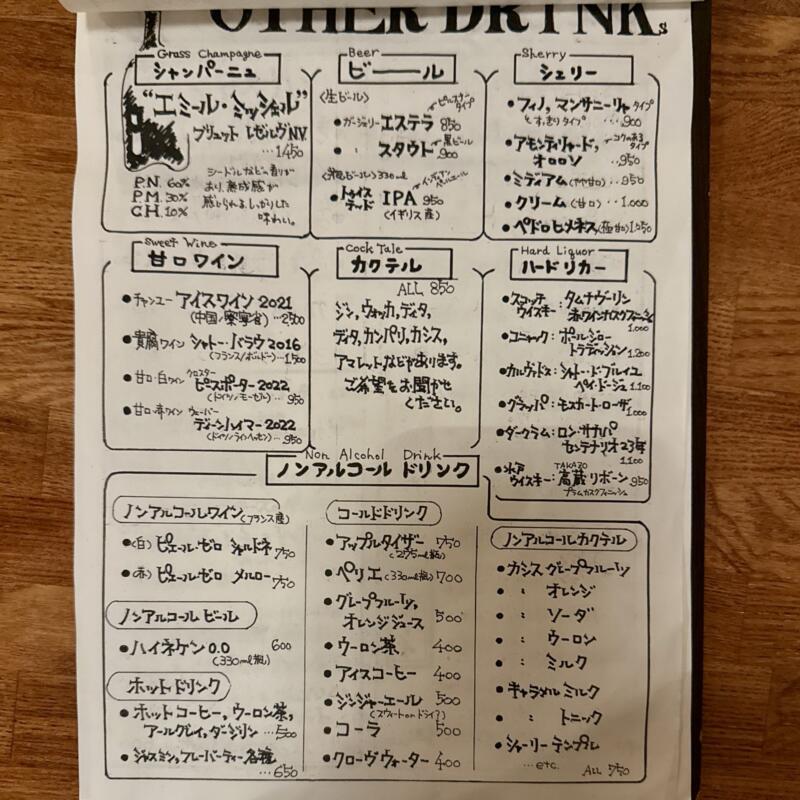 OTHER DRINKs
Grass Champagne
シャンパーニュ
"エミール・ミッシェル"
ブリュット レゼルヴNV
…1,450
P.N. 60%
P.M. 30%
CH. 10%
シードルなどの香りが
あり、熟成感が
感じられる、しっかりした
味わい。
Beer
ビール
〈生ビール〉
ピルスナータイプ
・ガージェリー エステラ 850
黒ビール
・ 〃 スタウト 900
〈瓶ビール〉330ml
・トゥイステッド IPA 950
(イギリス産)
Sherry
シェリー
・フィノ, マンサニーリャ タイプ
すっきりタイプ …900
・アモンティリャード, コクのあるタイプ
オロロソ …950
・ミディアム(やや甘口) …950
・クリーム(甘口) …1,000
・ペドロヒメネス(極甘口)
Sweet Wine
甘口ワイン
・チャンユー アイスワイン 2021
(中国/寮寧省) …2,500
・貴腐ワイン シャトー・バラウ 2016
(フランス/ボルドー) …1,500
・甘口・白ワイン クロスター
ピースポーター 2022
(ドイツ/モーゼル) …950
・甘口・赤ワイン ヴェーバー
ディーンハイマー 2022
(ドイツ/ラインヘッセン) …950
Cock Tale
カクテル
ALL 850
ジン, ウォッカ, ディタ,
ディタ, カンパリ, カシス,
アマレットなどがあります。
ご希望をお聞かせ
ください。
Hard Liquor
ハードリカー
・スコッチ タムナヴーリン
ウイスキー: 赤ワインカスクフィニッシュ
1,000
・コニャック: ポールジロー
トラディッション 1,200
・カルヴァドス: シャトー・ド・ブルイユ
ペイ・ドージュ 1,100
・グラッパ: モスカート・ローザ
1,000
・ダークラム: ロン・サカパ
センテナリオ 23年
1,100
TAKAZO
ウイスキー: 高蔵 リボーン 950
プラムカスクフィニッシュ
Non Alcohol Drink
ノンアルコール ドリンク
ノンアルコールワイン(フランス産)
・(白) ピエール・ゼロ シャルドネ 750
・(赤) ピエール・ゼロ メルロー 750
ノンアルコール ビール
・ハイネケン 0.0 600
(330ml瓶)
ホットドリンク
・ホットコーヒー, ウーロン茶,
アールグレイ, ダージリン …500
・ジャスミン, フレーバーティー 各種
…650
コールドドリンク
・アップルタイザー 750
(275ml瓶)
・ペリエ(330ml瓶) 700
・グレープフルーツ,
オレンジジュース 500
・ウーロン茶 400
・アイスコーヒー 400
・ジンジャーエール 500
(スウィート or ドライ?)
・コーラ 500
・クローヴウォーター 400
ノンアルコールカクテル
・カシス グレープフルーツ
・ 〃 オレンジ
・ 〃 ソーダ
・ 〃 ウーロン
・ 〃 ミルク
・キャラメル ミルク
・ 〃 トニック
・シャーリーテンプル
…etc. ALL 750